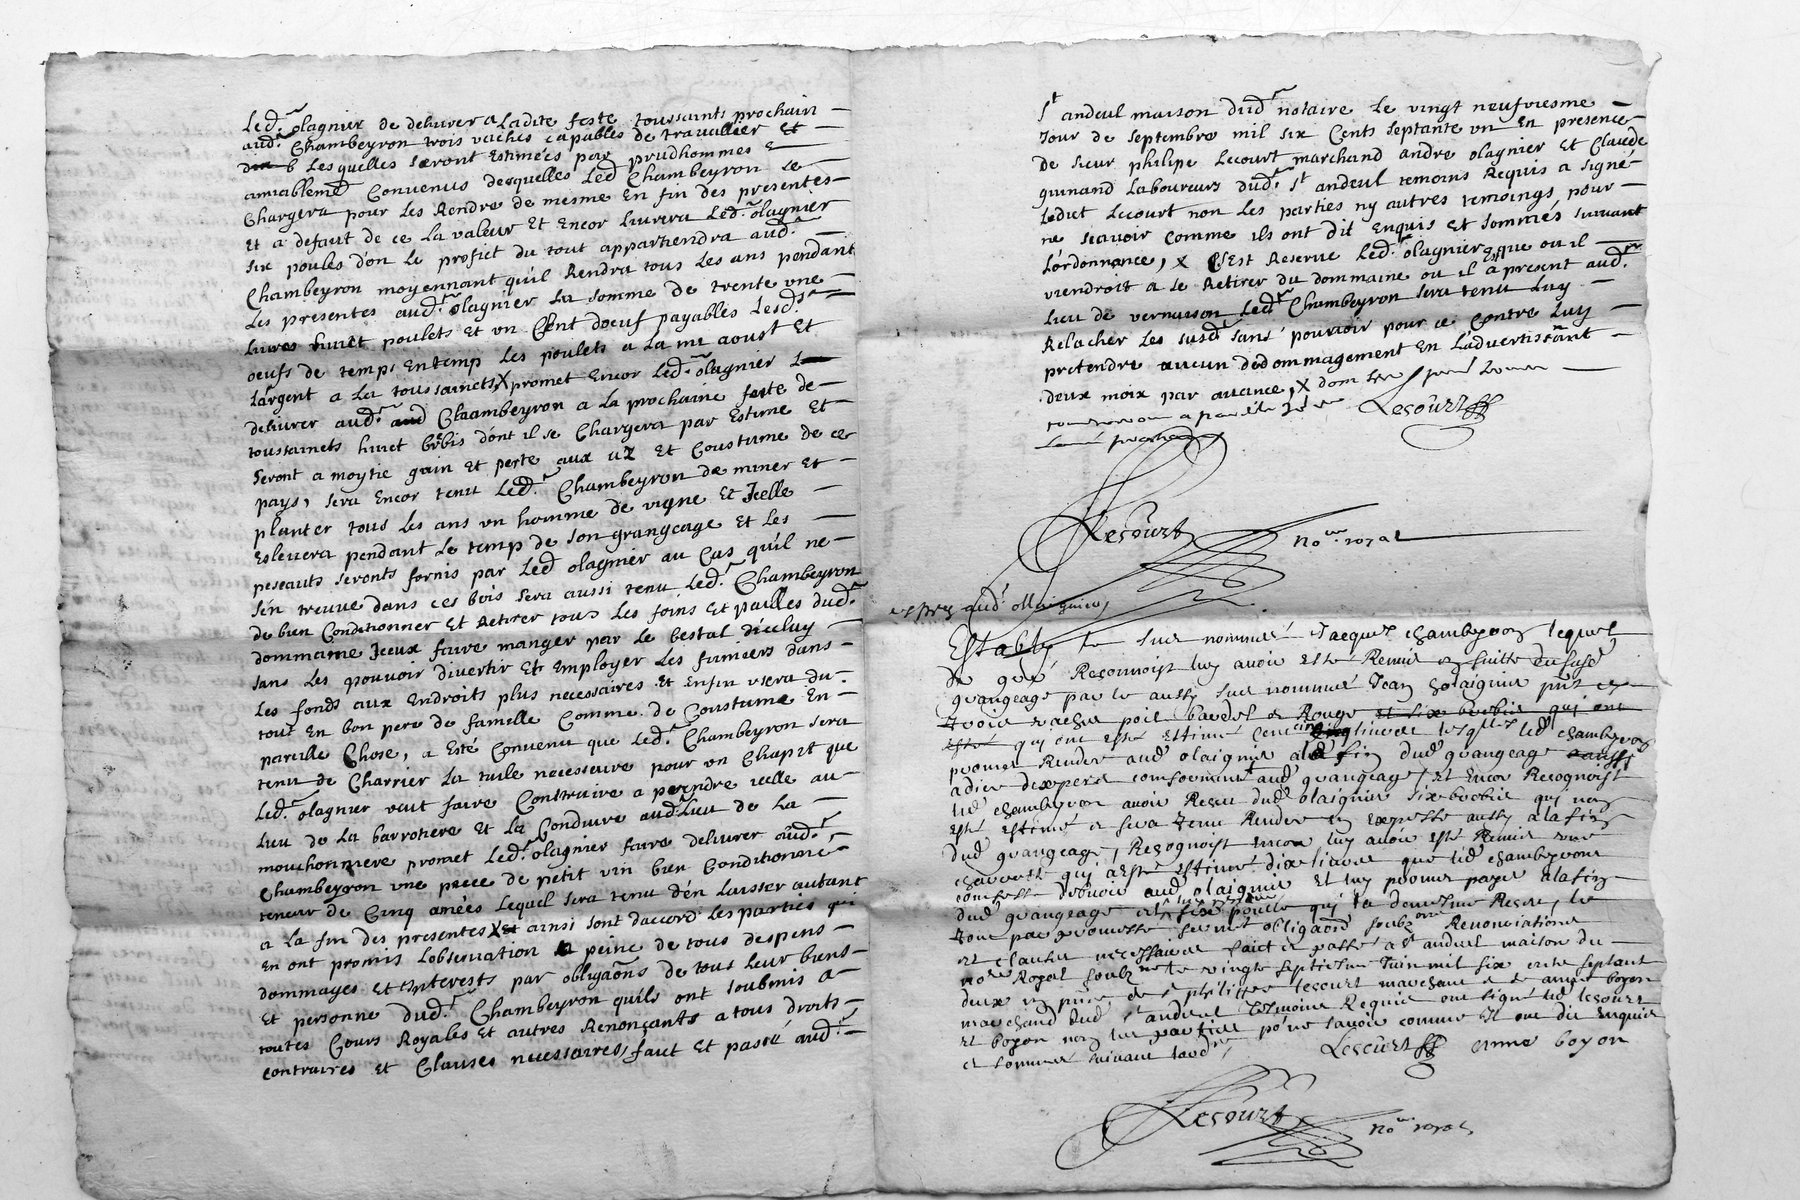 Led.r olagnier de delivrer a Ladite feste toussaints prochain
aud.r Chambeyron trois vaches capables de travallier Et
Lesquelles seront Estimées par prudhommes
amiablemt Convenus desquelles Led Chambeyron se
Chargera pour les Rendre de mesme En fin des presentes
Et a defaut de ce La valeur Et Encor Livrera Led.r olagnier
six poules don le profict du tout appartiendra aud.r
Chambeyron moyennant quil Rendra tous les ans pendant
Les presentes aud.r olagnier La somme de trente une
Livres huict poulets Et un Cent doeufs payables Lesd.s
oeufs de temps En temp Les poulets a La mi aoust Et
Largent a La toussaincts, X promet Encor Led.r olagnier
delivrer aud.r Chambeyron a La prochaine feste de
toussaincts huict brebis dont il se Chargera par Estime Et
seront a moytie gain Et perte aux uz Et Coustume de ce
pays, sera Encor tenu Led.r Chambeyron de miner Et
planter tous Les ans un homme de vigne Et Icelle
Eslevera pendant Le temp de son grangeage Et Les
peseauts seronts fornis par Led olagnier au Cas quil ne
sen treuve dans ces bois sera aussi tenu Led.r Chambeyron
de bien Conditionner Et Retirer tous Les foins Et pailles dud.r
dommaine Iceux faire manger par le bestal diceluy
sans Les pouvoir divertir Et Employer Les fumiers dans
Les fonds aux Endroits plus necessaires Et Enfin usera du
tout En bon pere de famelle Comme de Coustume En
pareille Chose, a Esté Convenu que Led.r Chambeyron sera
tenu de Charrier La tuile necessaire pour un Chapit que
Led.r olagnier veut faire Construire a prendre icelle au
Lieu de La barrotiere Et La Conduire aud.r Lieu de La
mouchonniere promet Led.r olagnier faire delivrer aud.r
Chambeyron une piece de petit vin bien Conditionné
teneur de Cinq anées Lequel sera tenu den Laisser autant
a La fin des presentes X ainsi sont daccord Les parties qui
En ont promis Lobservation a peine de tous despens
dommages Et Interests par obligaons de tous Leur biens
Et personne dud.r Chambeyron quils ont soubmis a
toutes Cours Royales Et autres Renonçants a tous droits
contraires Et Clauses necessaires, faict Et passé aud.t
St andeul maison dud.r notaire Le vingt neufviesme
Jour de septembre mil six Cents septante un En presence
de sieur philipe Lecourt marchand andre olagnier Et Claude
guinand Laboureurs dud.t St andeul temoins Requis a signé
Ledict Lecourt non Les parties ny autres temoings pour
ne scavoir Comme ils ont dit Enquis Et sommés suivant
Lordonnance, X Cest Reservé Led.r olagnier que ou il
viendroit a se Retirer du dommaine ou il Est a present aud.t
Lieu de vernaison Led.r Chambeyron sera tenu Luy
Relacher Les susd.s sans pouvoir pour ce Contre Luy
pretendre aucun dedommagement En Ladvertissant
deux mois par avance, X
Lecourt
Lecourt no.re royal
aud.t ollaignier,
Establi le sus nommé Jacques chambeyron lequel
de gré Reconnoist luy avoir esté Remis en suitte du susd
grangeage par le aussy sus nommé Jean holaignier pnt et
trois vaches poil bardel et Rouge et six brebis qui ont
esté qui ont esté estimé cent cinq livres lesquelles led chambeyron
promet Rendre aud olaignier a la fin dud grangeage
a dire dexpert conformemt aud grangeage, et Encor Recognoist
led chambeyron avoir Reçeu dud olaignier six brebis qui nont
esté estimé et sera tenu Rendre en espesse aussy a la fin
dud grangeage, Recognoist encor luy avoir esté Remis une
charrette qui a esté estimé dix livres que led chambeyron
confesse debvoir aud olaignier et luy promet payer a la fin
dud grangeage et six poulle qui la de mesme Reçeu, le
tout par promesse serment obligaon soubz.on Renonciations
et clauses necessaires faict et passé a St andeul maison du
no.re Royal soubz.né le vingt septiesme Juin mil six cents septante
deux en pnce de s.r philippe lecourt marchand et s.r anne boyon
marchand dud St andeul tesmoins Requis ont signé led lecourt
et boyon non les parties po.r ne savoir comme Ils ont dit enquis
et sommés suivant lord.ce,
Lecourt anne boyon
Lecourt no.re royal